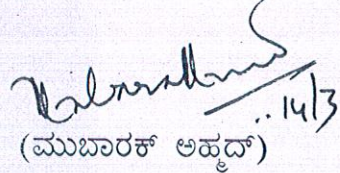 14/3
(ಮುಬಾರಕ್ ಅಹ್ಮದ್)